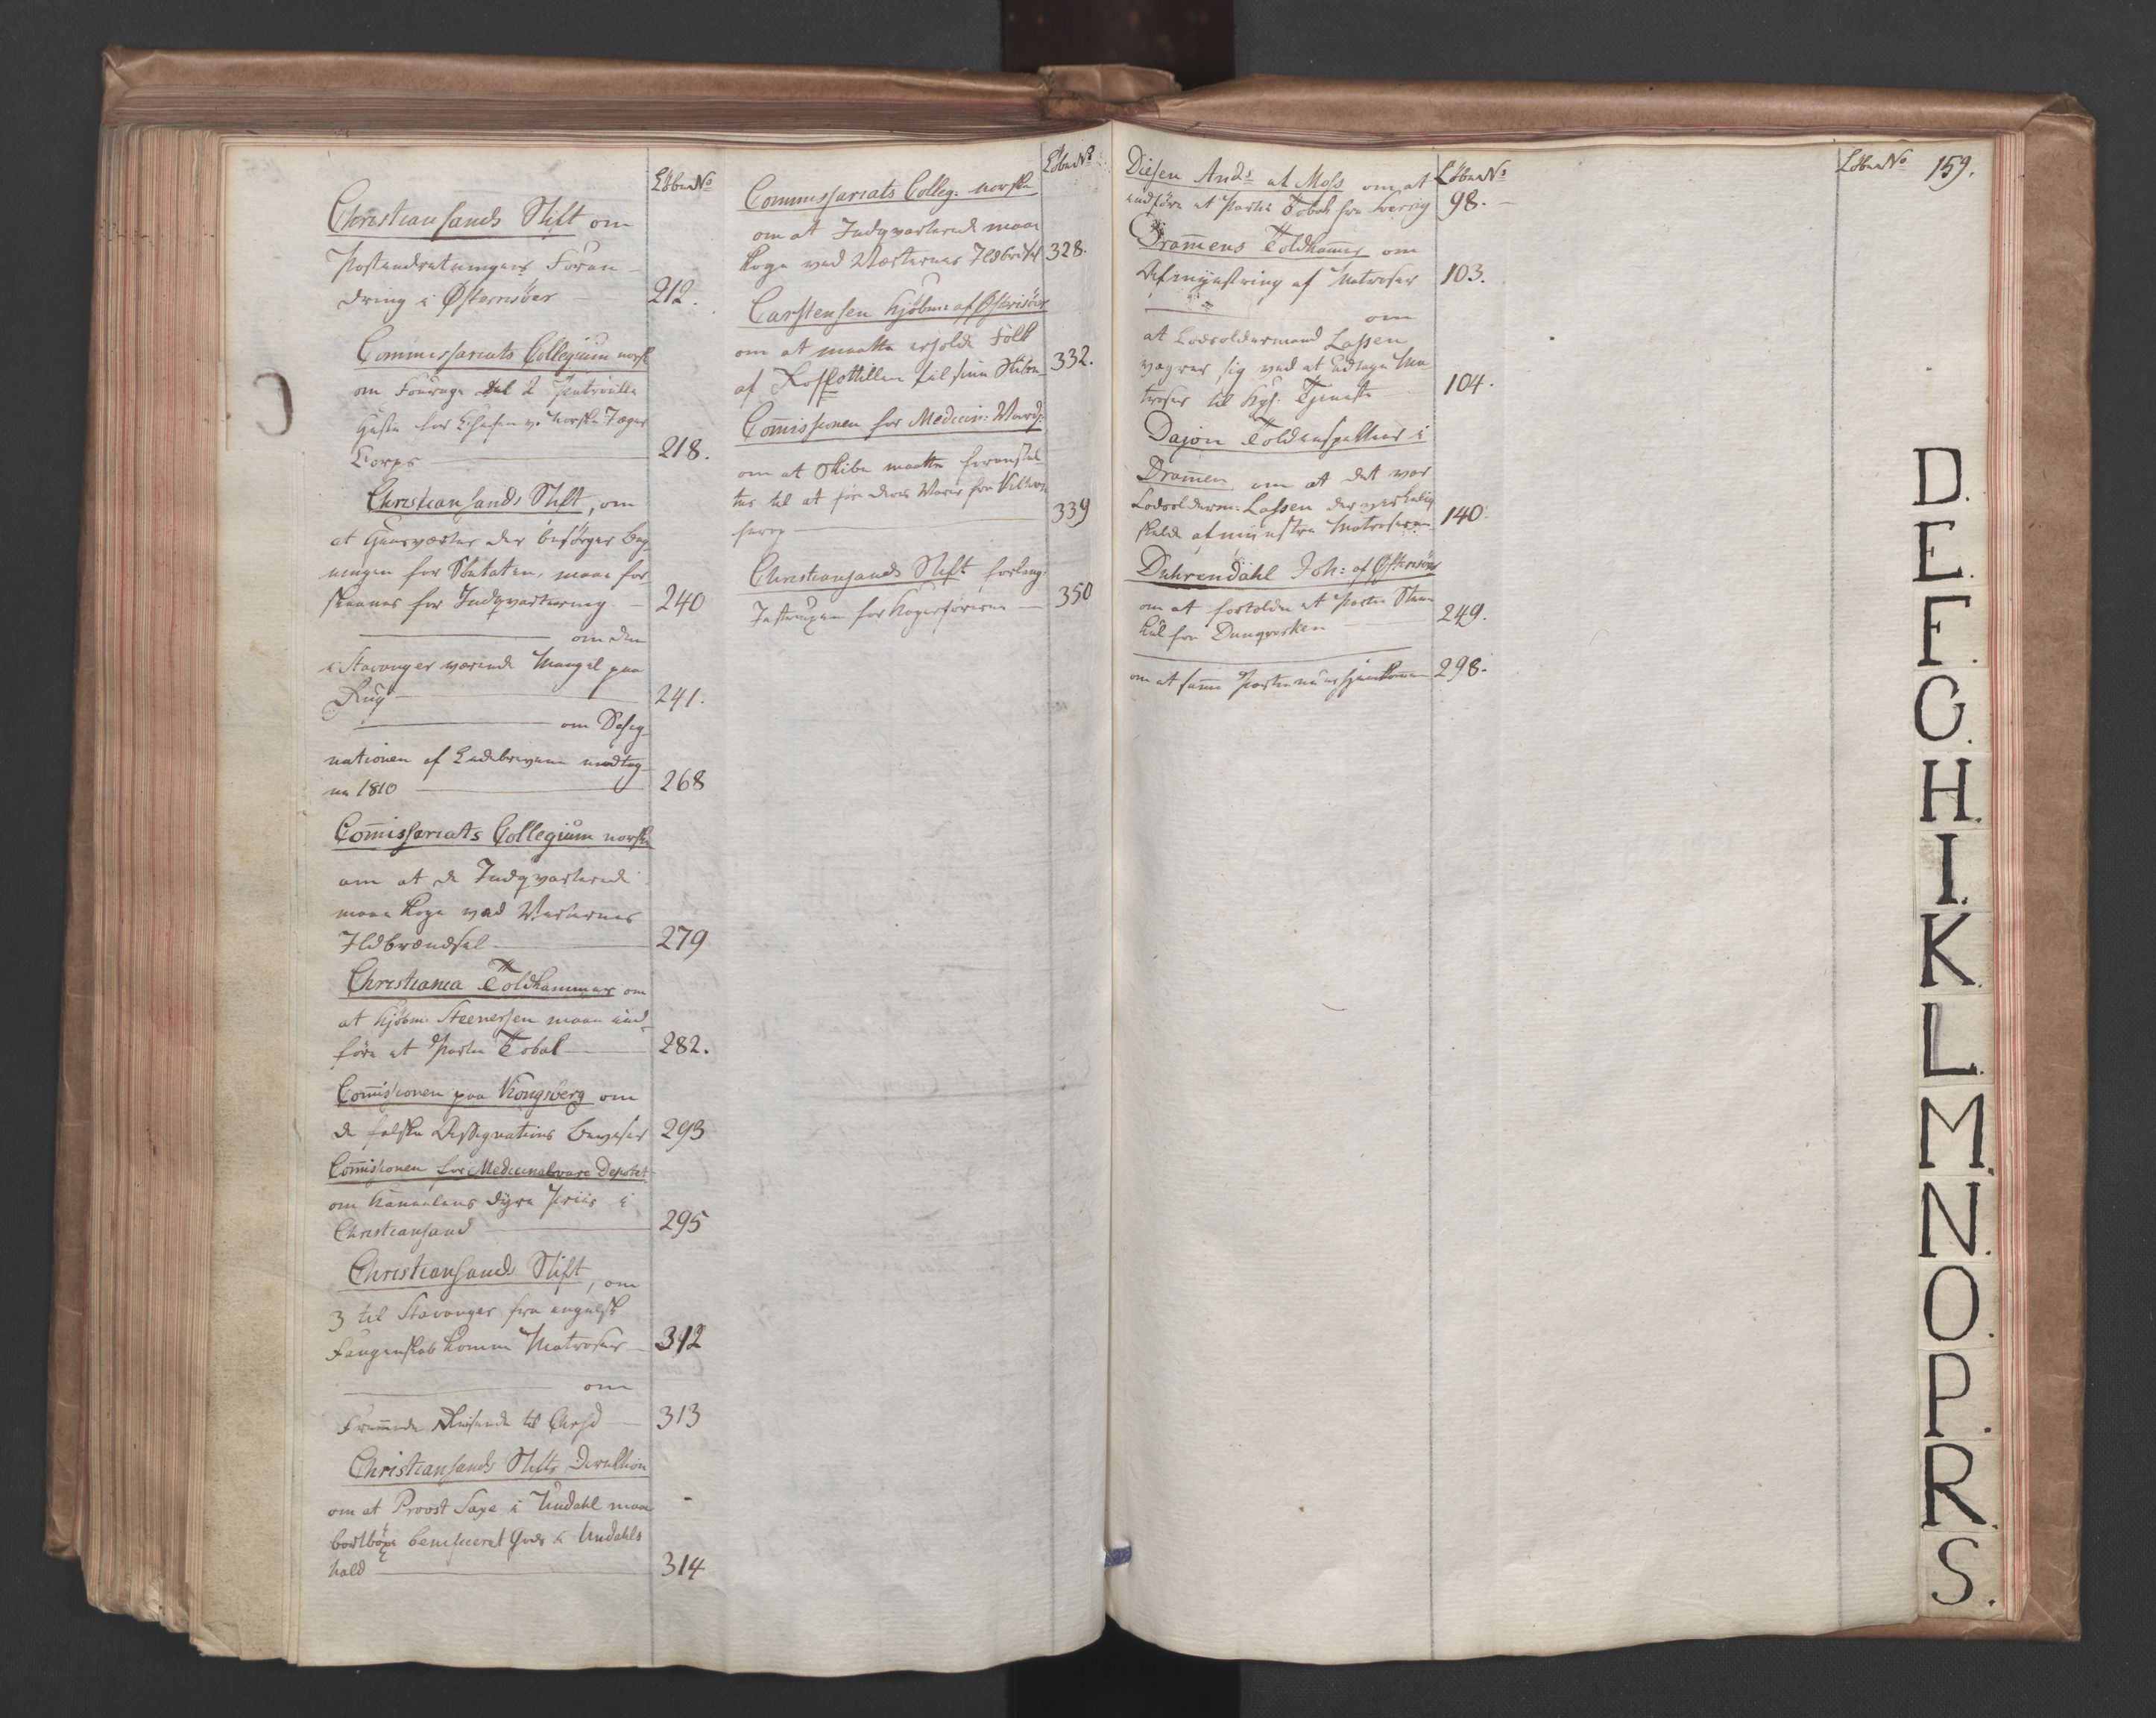 Löbe No
Christiansands Stift om
Postindretningens Foran-
dring i Østerrisöer 212.
Commissariats Collegium norsk
om Fourage til 2 Patrouille
Heste for Chefen v. norske Jæger
Corps 218.
Christiansands Stift, om
at Huusværter der besörger Bag-
ningen for Etaten, maae for
skaanes for Indqvartering 240
om den
i Stavanger værende Mangel paa
Rug 241.
om Desig-
nationen af Ladebrevene medtag-
ne 1810 268
Com̄issariats Collegium norske
om at de Indqvarterede
maae koge ved Værternes
Ildbrændsel 279
Christiania Toldkammer om
at Kjöbm. Steenersen maae ind-
före et Partie Tobak 282.
Com̄issionen paa Kongsberg om
de falske Assignations Beviser 293
Com̄issionen for Medicinalvare Depotet
om Kaneelens dyre Priis i
Christiansand 295
Christiansands Stift, om
3 til Stavanger fra engelsk
Fangenskab komne Matroser 312
om
Frem̄ede Reisende til Chrsd 313
Christiansands Stifts Direktion
om at Provst Saxe i Undahl maae
bortbÿxe beneficeret Gods i Undahls
hald 314
Löbe No
Commissariats Colleg. norske
om at Indqvarterede maae
koge ved Værternes Ildbrdsel 328.
Carstensen Kjöbm: af Østerisöer
om at maatte erholde Folk
af Roeflottillen til sine Skibe 332.
Com̄issionen for Medicin: Vareds:
om at Skibe maatte foranstal-
tes til at före deres Varer fra
339
Christiansands Stift forlang:
Instruxen for Kaperförerne 350
Diesen Ands at Moss om at Löbe No
indföre et Partie Tobak fra Sverrig 98.
Dram̄ens Toldkam̄er om
Afmÿnstring af Matroser 103.
om
at Lodsoldermand Lassen
vægrer sig ved at Udtage Ma
troser til Kgs. Tjeneste 104.
Dajon Toldinspekteur i
Dram̄en om at det var
Lodsolderm: Lassen der
skulde afmünstre Matroserne 140.
Duhrendahl Joh: af Østerisöer
om at fortolde et Partie Steen
kul fra Dunqverken 249.
om at samme Partie 298.
Löbe No 159.
D.
E.
F.
G.
H.
I.
K.
L.
M.
N.
O.
P.
R.
S.